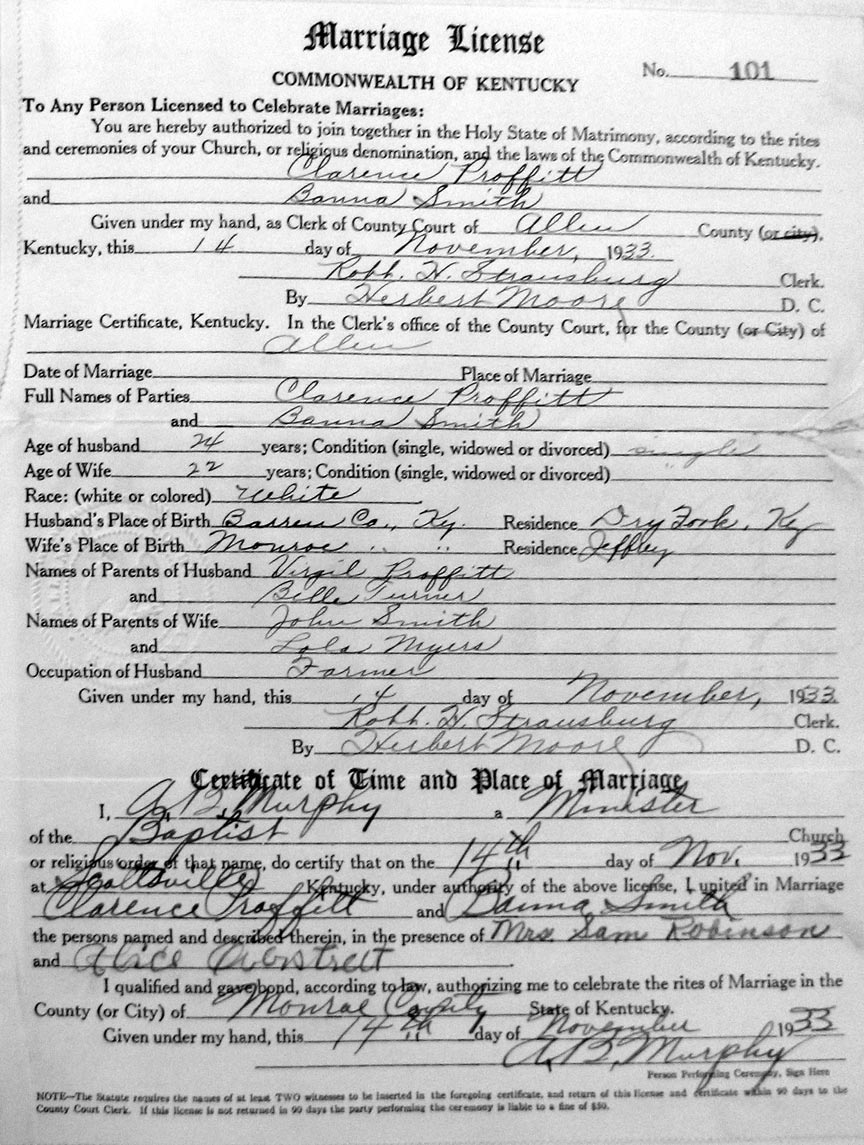 Marriage License
No. 101
COMMONWEALTH OF KENTUCKY
To Any Person Licensed to Celebrate Marriages:
You are hereby authorized to join together in the Holy State of Matrimony, according to the rites
and ceremonies of your Church, or religious denomination, and the laws of the Commonwealth of Kentucky.
Clarence Proffitt
and Banna Smith
Given under my hand, as Clerk of County Court of Allen County (or city),
Kentucky, this 14 day of November, 1933.
Robt. H. Strausburg Clerk.
By Herbert Moore D. C.
Marriage Certificate, Kentucky. In the Clerk's office of the County Court, for the County (or City) of
Allen
Date of Marriage Place of Marriage
Full Names of Parties Clarence Proffitt
and Banna Smith
Age of husband 24 years; Condition (single, widowed or divorced) single
Age of Wife 22 years; Condition (single, widowed or divorced) " "
Race: (white or colored) White
Husband's Place of Birth Barren Co., Ky. Residence Dry Fork, Ky
Wife's Place of Birth Monroe " " Residence Jeffrey
Names of Parents of Husband Virgil Proffitt
and Belle Turner
Names of Parents of Wife John Smith
and Lola Myers
Occupation of Husband Farmer
Given under my hand, this 14 day of November, 1933.
Robt. H. Strausburg Clerk.
By Herbert Moore D. C.
Certificate of Time and Place of Marriage
I, A. B. Murphy a Minister
of the Baptist Church
or religious order of that name, do certify that on the 14th day of Nov. 1933
at Scottsville Kentucky, under authority of the above license, I united in Marriage
Clarence Proffitt and Banna Smith
the persons named and described therein, in the presence of Mrs. Sam Robinson
and Alice
I qualified and gave bond, according to law, authorizing me to celebrate the rites of Marriage in the
County (or City) of Monroe County State of Kentucky.
Given under my hand, this 14th day of November 1933
A. B. Murphy
Person Performing Ceremony, Sign Here
NOTE—The Statute requires the names of at least TWO witnesses to be inserted in the foregoing certificate, and return of this license and certificate within 90 days to the
County Court Clerk. If this license is not returned in 90 days the party performing the ceremony is liable to a fine of $50.